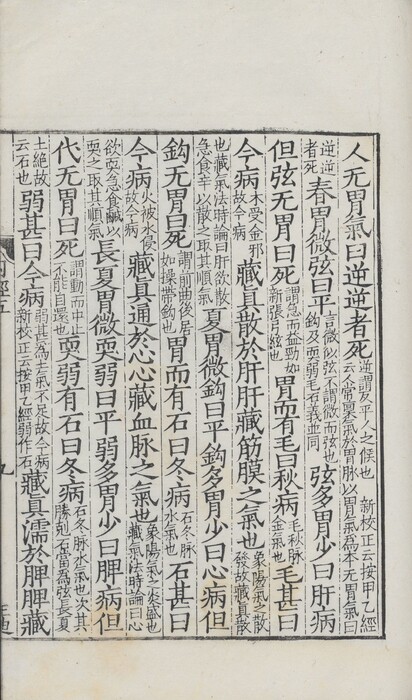 人无胃氣曰逆逆者死逆謂反平人之候也　新校正云按甲乙經云人常稟氣於胃脉以胃氣為本无胃氣曰
逆逆者死春胃微弦曰平言微似弦不謂微而弦也鈎及耎弱毛石義並同弦多胃少曰肝病
但弦无胃曰死謂急而益勁如新張弓弦也胃而有毛曰秋病毛秋脉金氣也毛甚曰
今病木受金邪故今病藏真散於肝肝藏筋膜之氣也象陽氣之散發故藏真散
也藏氣法時論曰肝欲散急食辛以散之取其順氣夏胃微鈎曰平鈎多胃少曰心病但
鈎无胃曰死謂前曲後居如操帶鈎也胃而有石曰冬病石冬脉水氣也石甚曰
今病火被水侵故今病藏真通於心心藏血脉之氣也象陽氣之炎盛也藏氣法時論曰心
欲耎急食鹹以耎之取其順氣長夏胃微耎弱曰平弱多胃少曰脾病但
代无胃曰死謂動而中止不能自還也耎弱有石曰冬病石冬脉水氣也次其勝剋石當為弦長夏
土絶故云石也弱甚曰今病弱甚為土氣不足故今病　新校正云按甲乙經弱作石藏真濡於脾脾藏